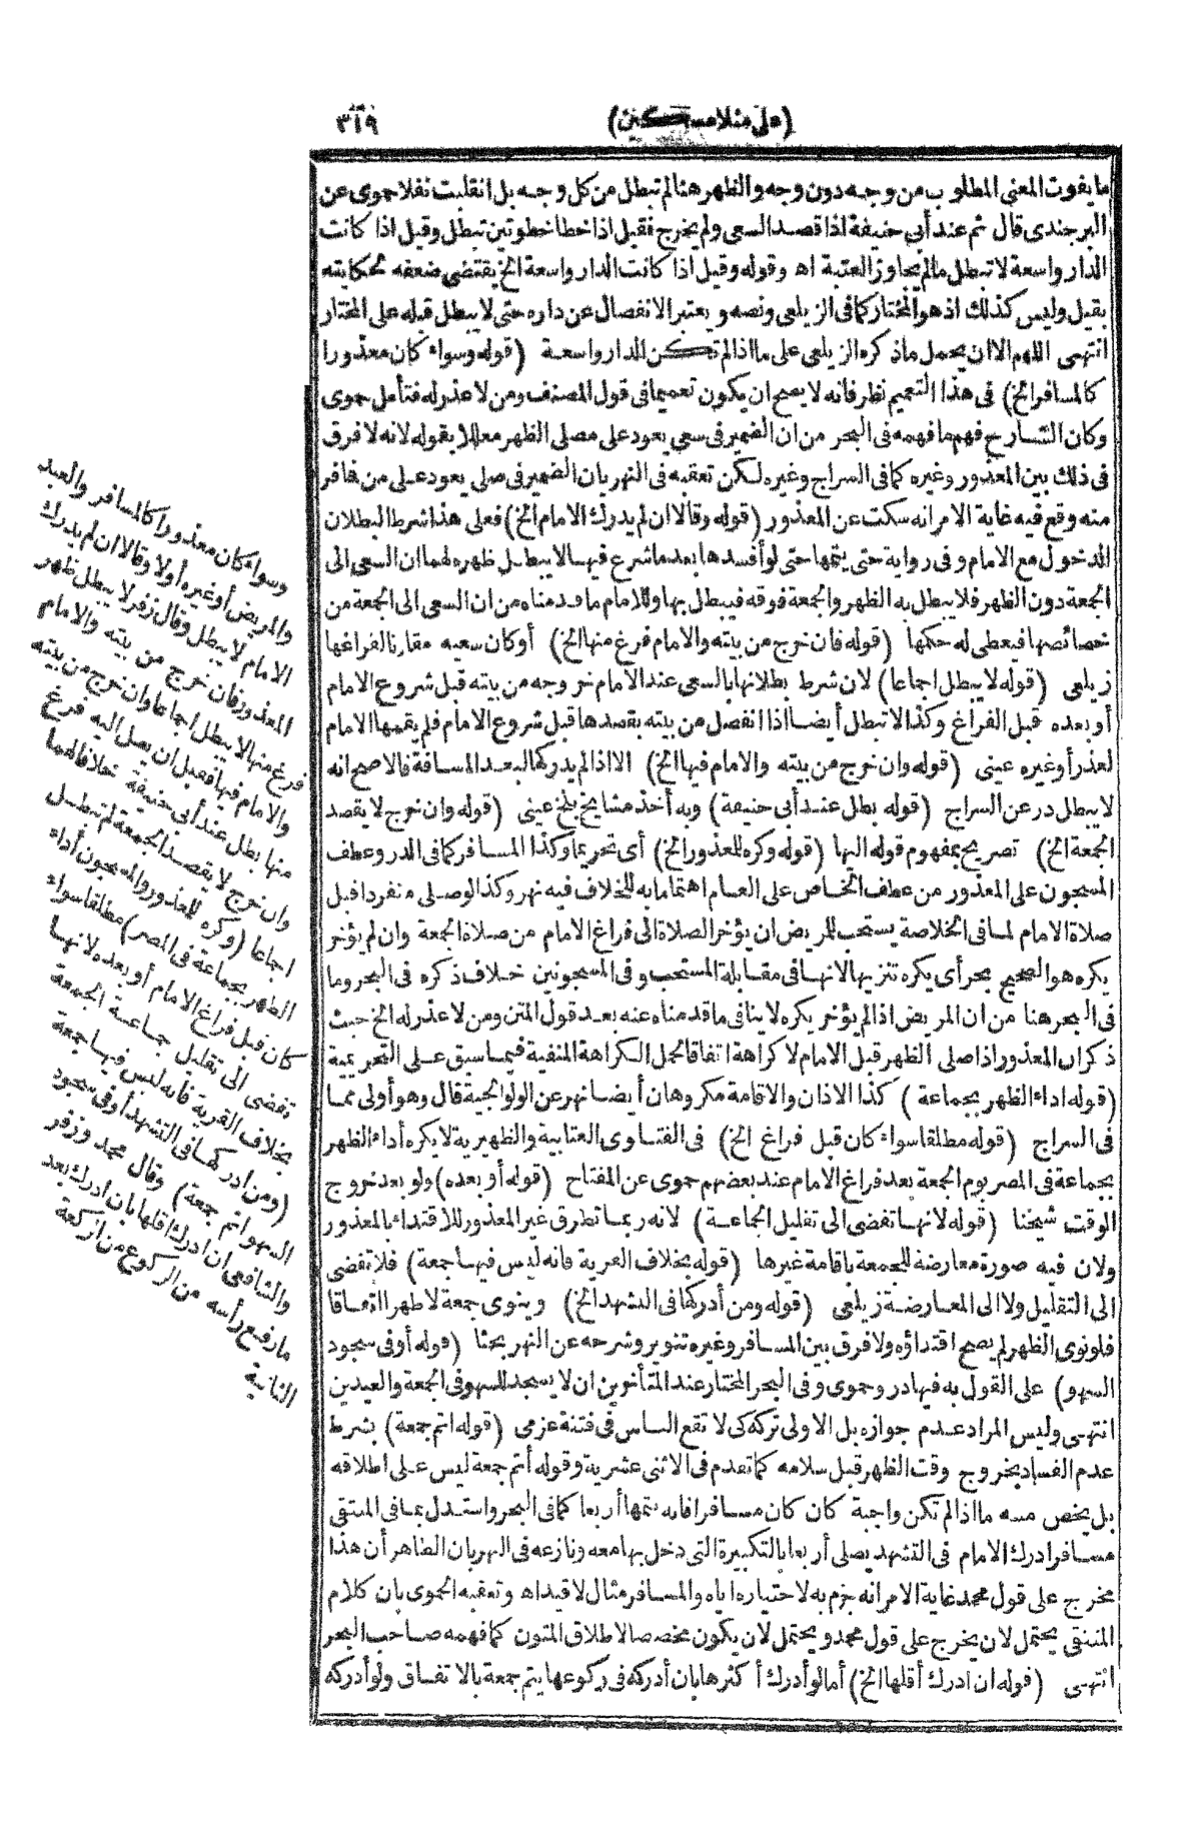 (على منلا مسكين)
٣١٩
ما يفوت المعنى المطلوب من وجه دون وجه والظهر هنا لم تبطل من كل وجه بل انقلبت نفلا حموى عن
البرجندى قال ثم عند أبى حنيفة اذا قصد السعى ولم يخرج فقيل اذا خطا خطوتين تبطل وقيل اذا كانت
الدار واسعة لا تبطل مالم يجاوز العتبة اه وقوله وقيل اذا كانت الدار واسعة الخ يقتضى ضعفه لحكايته
بقيل وليس كذلك اذ هو المختار كما فى الزيلعى ونصه ويعتبر الانفصال عن داره حتى لا يبطل قبله على المختار
انتهى اللهم الا ان يحمل ما ذكره الزيلعى على ما اذا لم تكن الدار واسعة (قوله وسواء كان معذورا
كالمسافر الخ) فى هذا التعميم نظر فانه لا يصح ان يكون تعميما فى قول المصنف ومن لا عذر له فتأمل حموى
وكان الشارح فهم ما فهمه فى البحر من ان الضمير فى سعى يعود على مصلى الظهر معللا بقوله لانه لا فرق
فى ذلك بين المعذور وغيره كما فى السراج وغيره لكن تعقبه فى النهر بان الضمير فى صلى يعود على من فافر
منه وقع فيه غاية الامر انه سكت عن المعذور (قوله وقالا ان لم يدرك الامام الخ) فعلى هذا شرط البطلان
الدخول مع الامام وفى رواية حتى يتمها حتى لو أفسدها بعد ما شرع فيها لا يبطل ظهره لهما ان السعى الى
الجمعة دون الظهر فلا يبطل به الظهر والجمعة فوقه فيبطل بها وللامام ما قدمناه من ان السعى الى الجمعة من
خصائصها فيعطى له حكمها (قوله فان خرج من بيته والامام فرغ منها الخ) أو كان سعيه مقارنا لفراغها
زيلعى (قوله لا يبطل اجماعا) لان شرط بطلانها بالسعى عند الامام خروجه من بيته قبل شروع الامام
أو بعده قبل الفراغ وكذا لا تبطل أيضا اذا انفصل من بيته بقصدها قبل شروع الامام فلم يقمها الامام
لعذر أو غيره عينى (قوله وان خرج من بيته والامام فيها الخ) الا اذا لم يدركها لبعد المسافة فالاصح انه
لا يبطل در عن السراج (قوله بطل عند أبى حنيفة) وبه أخذ مشايخ بلخ عينى (قوله وان خرج لا يقصد
الجمعة الخ) تصريح بمفهوم قوله اليها (قوله وكره للعذور الخ) أى تحريما وكذا المسافر كما فى الدر وعطف
المسجون على المعذور من عطف الخاص على العام اهتماما به للخلاف فيه نهر وكذا لو صلى منفردا قبل
صلاة الامام لما فى الخلاصة يستحب للمريض ان يؤخر الصلاة الى فراغ الامام من صلاة الجمعة وان لم يؤخر
يكره هو الصحيح بحر أى يكره تنزيها لانها فى مقابلة المستحب وفى المسجونين خلاف ذكره فى البحر وما
فى البحر هنا من ان المريض اذا لم يؤخر يكره لا ينافى ما قدمناه عنه بعد قول المتن ومن لا عذر له الخ حيث
ذكر ان المعذور اذا صلى الظهر قبل الامام لا كراهة اتفاقا لحمل الكراهة المنفية فيما سبق على التحريمية
(قوله اداء الظهر بجماعة) كذا الاذان والاقامة مكروهان أيضا نهر عن الولوالجية قال وهو أولى مما
فى السراج (قوله مطلقا سواء كان قبل فراغ الخ) فى الفتاوى العتابية والظهيرية لا يكره أداء الظهر
بجماعة فى المصر يوم الجمعة بعد فراغ الامام عند بعضهم حموى عن المفتاح (قوله أو بعده) ولو بعد خروج
الوقت شيخنا (قوله لانها تفضى الى تقليل الجماعة) لانه ربما تطرق غير المعذور للاقتداء بالمعذور
ولان فيه صورة معارضة للجمعة باقامة غيرها (قوله بخلاف القرية فانه ليس فيها جمعة) فلا تفضى
الى التقليل ولا الى المعارضة زيلعى (قوله ومن أدركها فى التشهد الخ) وينوى جمعة لا ظهرا اتفاقا
فلو نوى الظهر لم يصح اقتداؤه ولا فرق بين المسافر وغيره تنوير وشرحه عن النهر بحثا (قوله أو فى سجود
السهو) على القول به فيها در وحموى وفى البحر المختار عند المتأخرين ان لا يسجد للسهو فى الجمعة والعيدين
انتهى وليس المراد عدم جوازه بل الاولى تركه كى لا تقع الناس فى فتنة عزمى (قوله اتم جمعة) بشرط
عدم الفساد بخروج وقت الظهر قبل سلامه كما تقدم فى الاثنى عشرية وقوله أتم جمعة ليس على اطلاقه
بل يخص منه ما اذا لم تكن واجبة كان كان مسافرا فانه يتمها أربعا كما فى البحر واستدل بما فى المنتقى
مسافر ادرك الامام فى التشهد يصلى أربعا بالتكبيرة التى دخل بها معه ونازعه فى النهر بان الظاهر أن هذا
مخرج على قول محمد غاية الامر انه جزم به لاختياره اياه والمسافر مثال لا قيد اه وتعقبه الحموى بان كلام
المنتقى يحتمل لان يخرج على قول محمد ويحتمل لان يكون مخصصا لاطلاق المتون كما فهمه صاحب البحر
انتهى (قوله ان ادرك أقلها الخ) أما لو أدرك أكثرها بان أدركه فى ركوعها يتم جمعة بالاتفاق ولو أدركه
وسواء كان معذورا كالمسافر والعبد
والمريض أو غيره أولا وقالا ان لم يدرك
الامام لا يبطل وقال زفر لا يبطل ظهر
المعذور فان خرج من بيته والامام
فرغ منها لا يبطل اجماعا وان خرج من بيته
والامام فيها فقبل ان يصل اليه فرغ
منها بطل عند أبى حنيفة خلافا لهما
وان خرج لا يقصد الجمعة لم تبطل
اجماعا (وكره للعذور والمسجون أداء
الظهر بجماعة فى المصر) مطلقا سواء
كان قبل فراغ الامام أو بعده لانها
تفضى الى تقليل جماعة الجمعة
بخلاف القرية فانه ليس فيها جمعة
(ومن ادركها فى التشهد أو فى سجود
السهو اتم جمعة) وقال محمد وزفر
والشافعى ان ادرك اقلها بان ادرك بعد
ما رفع رأسه من الركوع من الركعة
الثانية